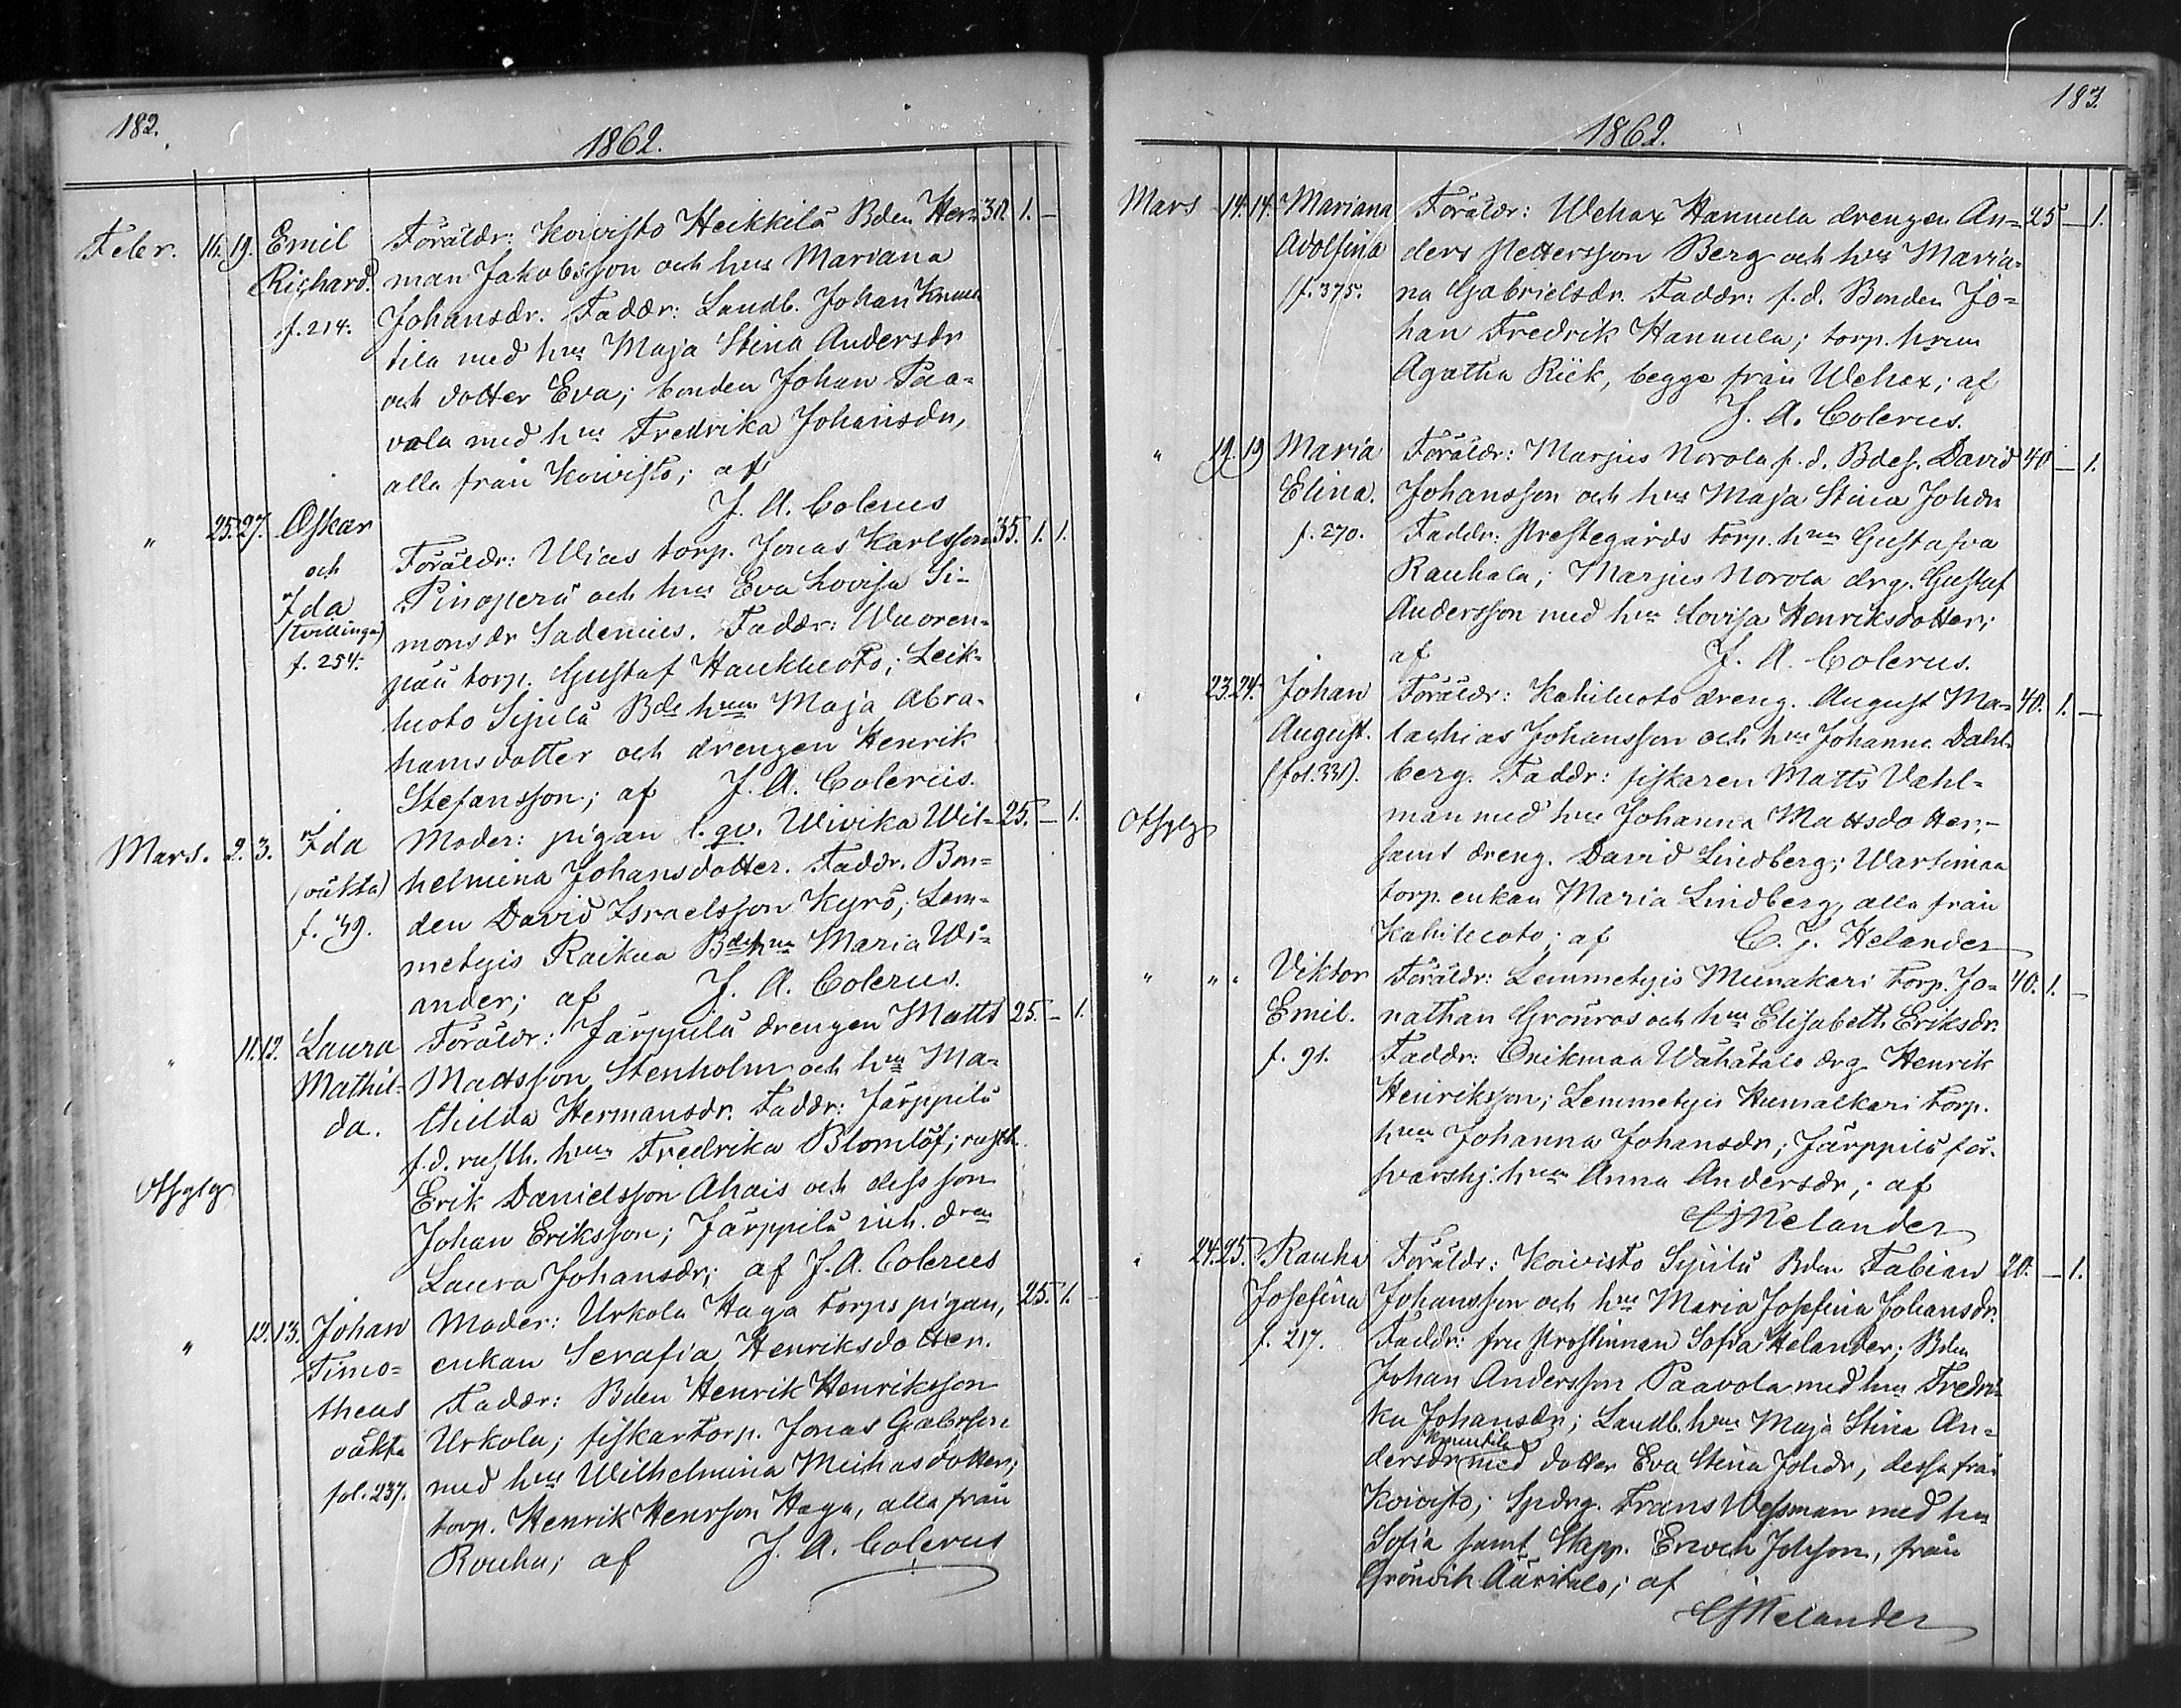 182.
1862.
Febr. 16. 19. Emil Föräldr: Koivisto Heikkilä Bden Her= 30. 1. —
Richard. man Jakobsson och hus Mariana
f. 214. Johansdr. Faddr: Landb. Johan Knuu
tila med hus Maja Stina Andersdr
och dotter Eva; bonden Johan Paa-
vola med hus Fredrika Johansdr,
alla från Koivisto; af
J. A. Colerus
" 25. 27. Oskar Föräldr: Wias torp. Jonas Karlsson 35. 1. 1.
och Pinoperä och hus Eva Lovisa Si-
Ida monsdr Sadenius. Faddr: Wuoren-
(tvillingar) pää torp. Gustaf Haukluoto; Leik-
f. 254. luoto Sipilä Bde hus Maja Abra-
hamsdotter och drengen Henrik
Stefansson; af J. A. Colerus.
Mars. 2. 3. Ida Moder: pigan l. qv. Ulvika Wil- 25. — 1.
(oäkta) helmina Johansdotter. Faddr. Bon=
f. 49. den David Israelsson Kyrö; Lem-
metyis Raikua Bdes hu Maria Wi=
ander; af J. A. Colerus.
" 11. 12. Laura Föräldr: Järppilä drengen Matts 25. — 1.
Mathil- Mattsson Stenholm och hu Ma-
da. thilda Hermansdr. Faddr: Järppilä
f. d. rusth. hus Fredrika Blomlöf; rusth.
Erik Danielsson Ahais och dess son
Johan Eriksson; Järppilä inh. dren
Laura Johansdr; af J. A. Colerus
" 12. 13. Johan Moder: Urkola Haga torps pigan, 25. 1. —
Timo= enkan Serafia Henriksdotter.
theus Faddr: Bden Henrik Henriksson
oäkta Urkola; fiskartorp. Jonas Gabrsson
fol. 237. med hus Wilhelmina Michasdotter;
torp. Henrik Henrsson Haga, alla från
Rouhu; af J. A. Colerus
183.
1862.
Mars 14. 14. Mariana Föräldr: Wehax Hannula drengen An= 25 — 1.
Adolfina ders Pettersson Berg och hus Maria-
f. 375. na Gabrielsdr. Faddr: f. d. Bonden Jo=
han Fredrik Hannula; torp. hum
Agatha Rick, begge från Wehax; af
J. A. Colerus.
" 19. 19 Maria Föräldr: Marjus Norola f. d. Bdes. David 40 — 1.
Elina. Johansson och hus Maja Stina Johdr
f. 270. Faddr. Prestegårds torp. hus Gustafva
Rauhala; Marjus Norola drg. Gustaf
Andersson med hu Lovisa Henriksdotter;
af J. A. Colerus.
" 23. 24. Johan Föräldr: Kahiluoto dreng. August Ma= 40. 1. —
August. lachias Johansson och hus Johanna Dahl-
(fol. 331). berg. Faddr: fiskaren Matts Vahl-
man med hus Johanna Mattsdotter, —
samt dreng. David Lindberg; Wartimaa
torp. enkan Maria Lindberg, alla från
Kahiluoto; af C. J. Helander
" " " Viktor Föräldr: Lemmetyis Munakari torp. Jo- 40. 1. —
Emil. nathan Grönros och hus Elisabeth Eriksdr.
f. 91. Faddr: Onikmaa Wähätalo drg Henrik
Henriksson; Lemmetyis Humalkari torp.
hus Johanna Johansdr; Järppilä för-
svarskj: hus Anna Andersdr; af
CJHelander
" 24. 25. Rauha Föräldr: Koivisto Sipilä Bden Fabian 20. — 1.
Josefina Johansson och hus Maria Josefina Johansdr.
f. 217. Faddr: fru Prostinnan Sofia Helander; Bden
Johan Andersson Paavola med hus Fredri-
ka Johansdr; Landb. hus Maja Stina An-
Knuutila
dersdr med dotter Eva Stina Johdr, dessa från
Koivisto; Spdrg. Frans Wessman med hu
Sofia samt Skepp. Enoch Johsson, från
Grönvik Ääritalo; af
CJHelander